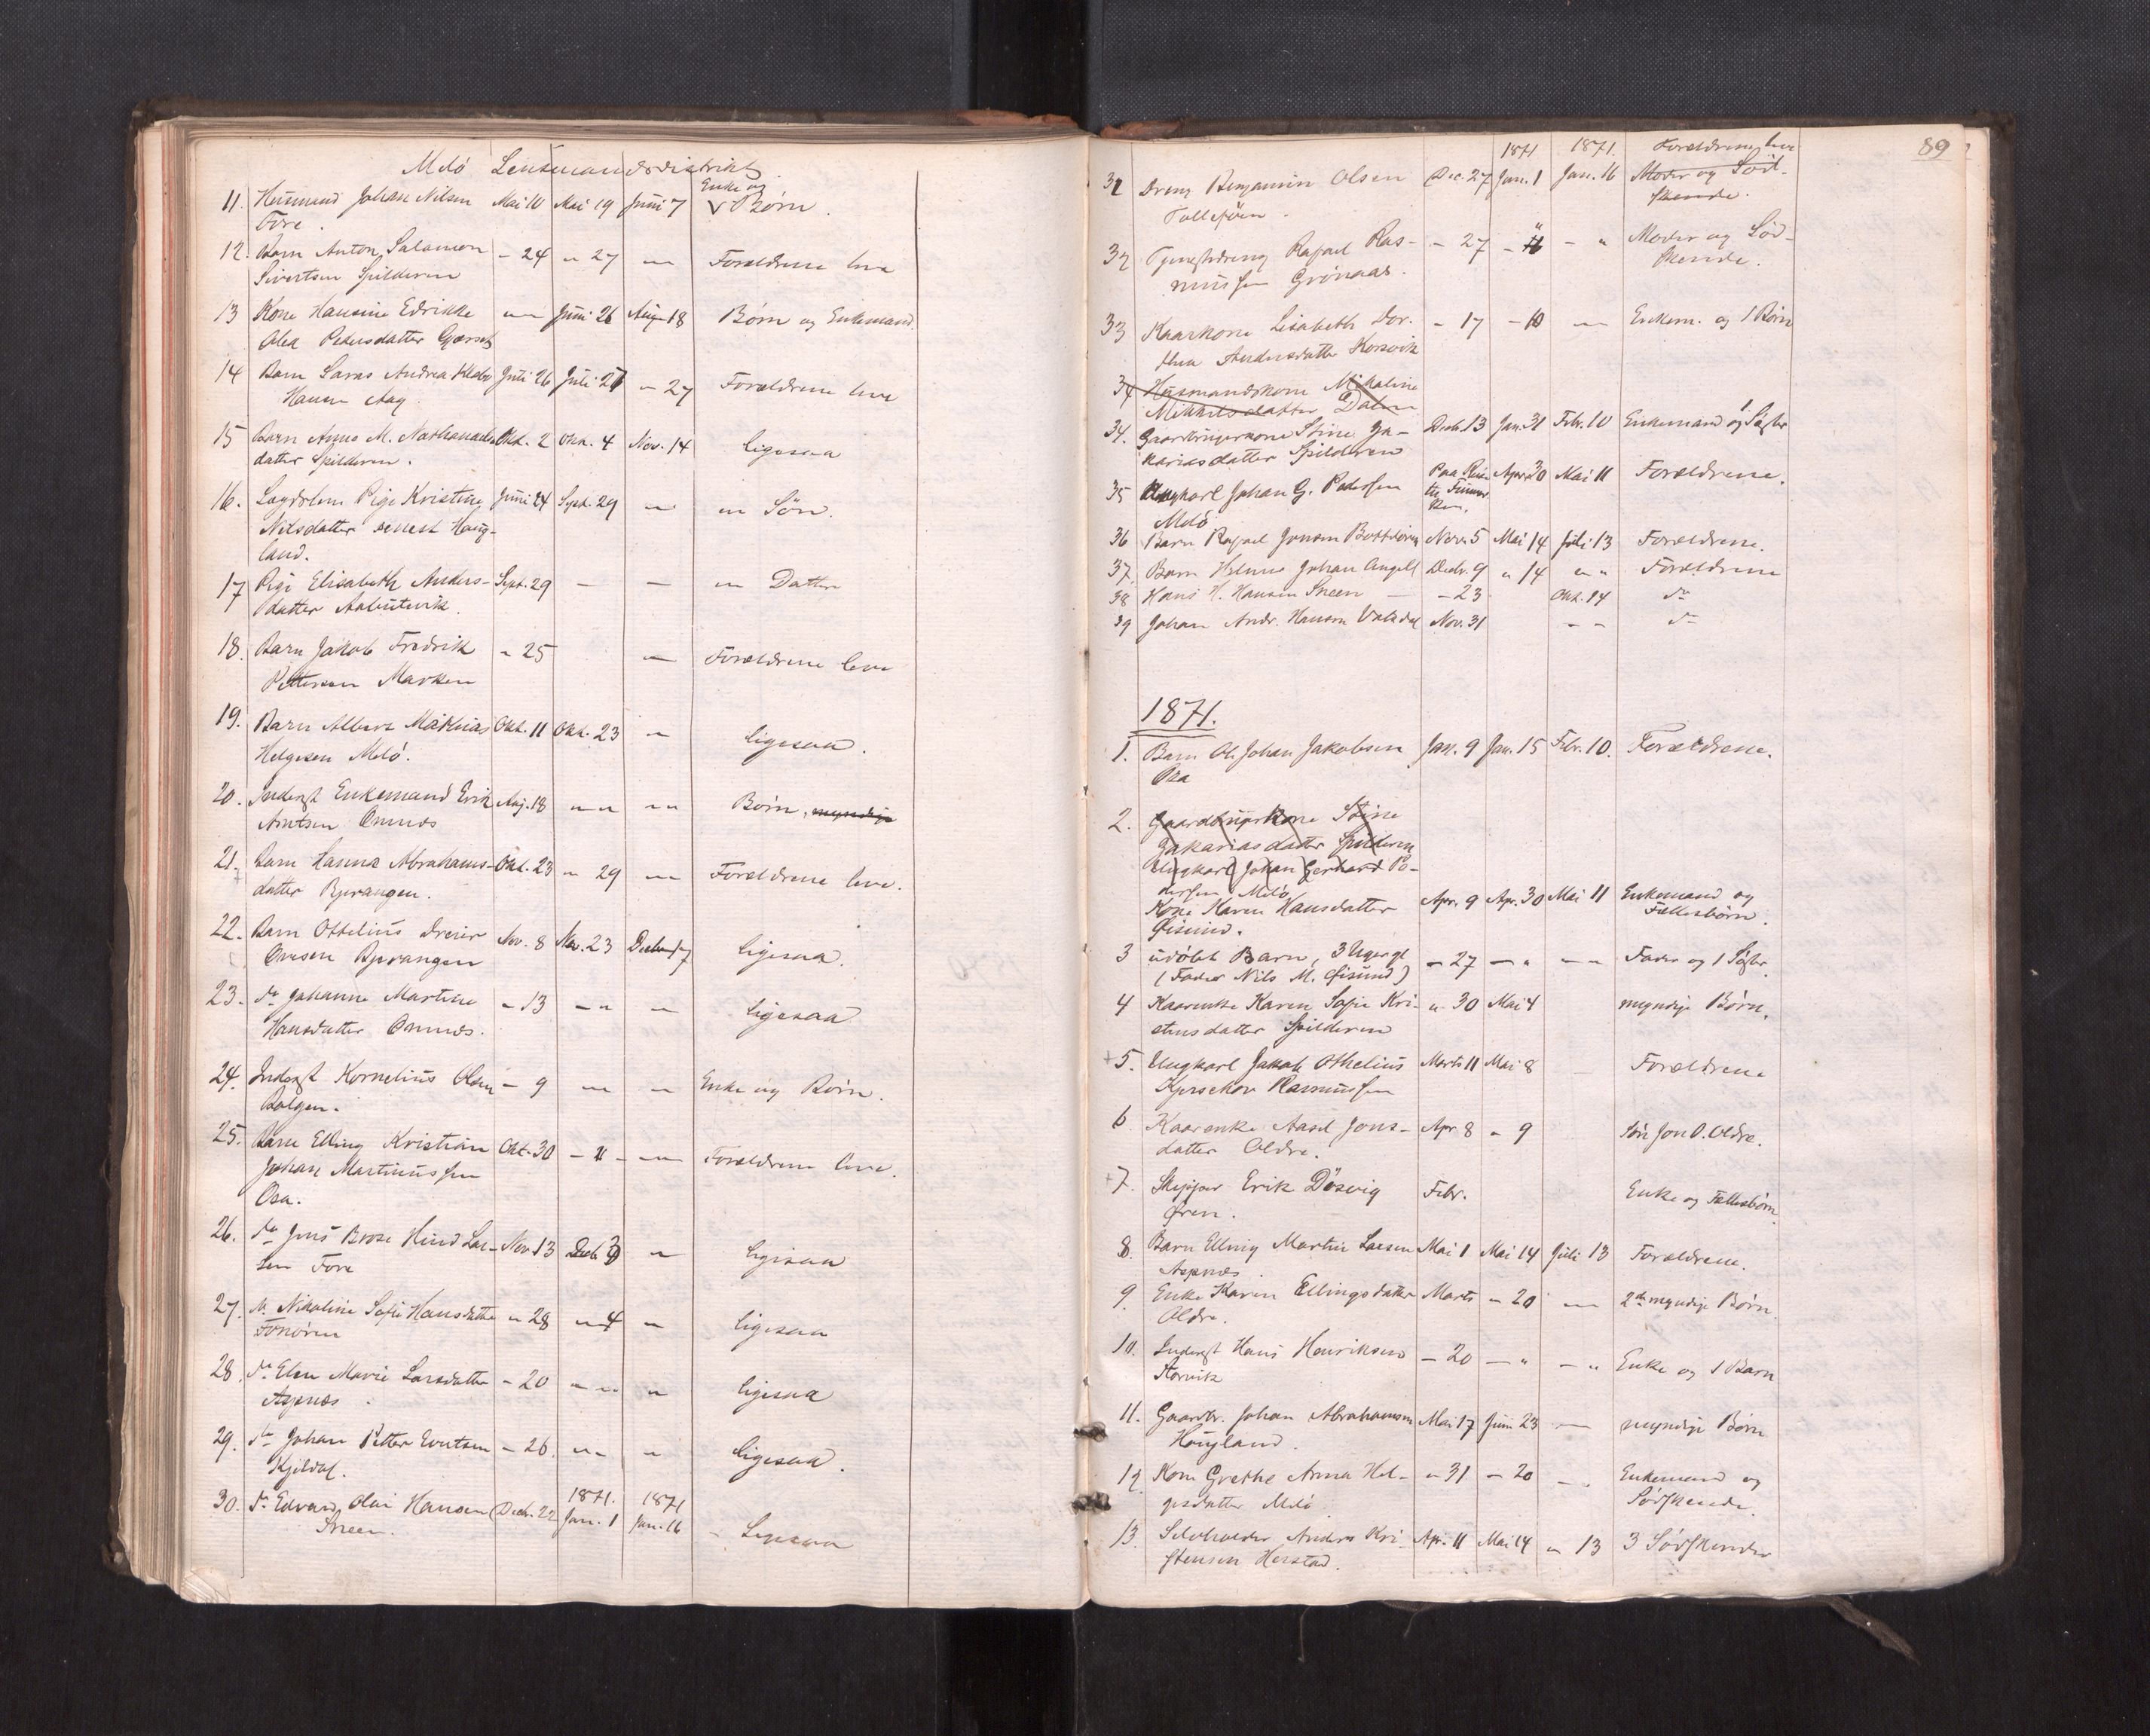 Melø Lensmandsdistrikt
11. Husmand Johan Nilsen Mai 10 Mai 19 Juni 7 Enke og Børn.
Fore.
12. Barn Anton Salamon - 24 - 27 - Forældrene leve
Sivertsen Spilderen
13 Kone Hansine Edrikke - Juni 26 Aug. 18 Børn og Enkemand.
Olea Pedersdatter Gjærset
14 Barn Juli 26 Juli 27 - 27 Forældrene leve
Hansen Aag
15 Barn Anne M. Nathanaels Okt. 2 Okt. 4 Nov. 14 ligesaa
datter Spilderen.
16. Lægdslem Pige Kristine Juni 24 Sept. 29 - en Søn.
Nilsdatter senest Haug-
land.
17 Pige Elisabeth Anders- Sept. 29 - - en Datter
datter
18. Barn Jakob Fredrik - 25 - Forældrene leve
Pettersen Marken
19. Barn Albert Mathias Okt. 11 Okt. 23 - ligesaa.
Helgesen Melø.
20. Inderst Enkemand Erik Aug. 18 - - Børn, myndige
Arntsen Ønnes
21. Barn Hanna Abrahams- Okt. 23 - 29 - Forældrene leve.
datter Bjerangen.
22. Barn Othelius Dreier Nov. 8 Nov. 23 Decbr. 7 ligesaa.
Ovesen Bjerangen
23. do Johanne Martine - 13 - - ligesaa
Hansdatter Ønnes.
24. Inderst Kornelius Olsen - 9 - - Enke og Børn.
Bolgen.
25. Barn Elling Kristian Okt. 30 - - Forældrene leve.
Johan Martinussen
Osa.
26. do Jens Brose Hind Lar- Nov. 13 Decb. - ligesaa
sen Fore
27. do Nikoline Sofie Hansdatter - 28 - 4 - ligesaa
Fonøren
28. do Elen Marie Larsdatter - 20 - - ligesaa
Aspnæs.
29. do Johan Petter Evertsen - 26 - - ligesaa.
Kjeldal.
30. do Edvard Olai Hansen Decb. 22 1871. Jan. 1 1871 Jan. 16 - Ligesaa
Sneen.
89
1871 1871. Forældrene leve
31 Dreng Benjamin Olsen Dec. 27 Jan. 1 Jan. 16 Moder og Sød-
skende.
32 Tjenestedreng Rafael Ras- - 27 - - Moder og Sød-
mussen Grønaas. skende.
33 Kaarkone Lisabeth Dor- - 17 - 10 - Enkem. og 1 Børn
thea Andersdatter Korsvik
34 Husmandskone Mikaline
Mikkelsdatter Dalen
34. Gaardbrugerkone Stine Za- Decb. 13 Jan. 31 Febr. 10 Enkemand og 1 Søster
kariasdatter Spilderen
35 Ungkarl Johan G. Pedersen Paa Reise til Finmarken. Apr. 30 Mai 11 Forældrene.
Melø
36 Barn Rafael Jonsen Nov. 5 Mai 14 Juli 13 Forældrene.
37. Barn Johan Angell Decb. 9 - 14 - Forældrene
38 Hans H. Hansen Sneen - - 23 Okt. 14 do
39 Johan Andr. Hansen Valsdal Nov. 31 - - do
1871.
1. Barn Ole Johan Jakobsen Jan. 9 Jan. 15 Febr. 10. Forældrene.
Osa
2. Gaardbrugerkone Stine
Zakariasdatter Spilderen
Ungkarl Johan Gerhard Pe-
dersen Melø
Kone Karen Hansdatter Apr. 9 Apr. 30 Mai 11 Enkemand og
Øisund. Fællesbørn.
3 udøbt Barn, 3 Uger gl - 27 - - Fader og 1 Søster.
(Fader Nils M. Øisund)
4 Kaarenke Karen Sofie Kri- - 30 Mai 4 myndige Børn.
stensdatter Spilderen
5. Ungkarl Jakob Othelius Marts 11 Mai 8 Forældrene
Kjerschow Rasmussen
6. Kaarenke Aasel Jons- Apr. 8 - 9 Søn Jon O. Oldre.
datter Oldre.
7. Skipper Erik Døsvig Febr. Enke og Fællesbørn
Øren.
8. Barn Elling Martin Larsen Mai 1 Mai 14 Juli 13 Forældrene.
Aspnæs.
9. Enke Karen Ellingsdatter Marts - 20 - 2de myndige Børn.
Oldre.
10. Inderst Hans Henriksen - 20 - - Enke og 1 Barn
Storvik
11. Gaardbr. Johan Abrahamsen Mai 17 Juni 23 - myndige Børn
Haugland.
12. Kone Grethe Anna Hel- - 31 - 20 - Enkemand og
gesdatter Melø Sødskende.
13. Selvholder Anders Kri- Apr. 11 Mai 14 - 13 3 Sødskender
stensen Herstad.